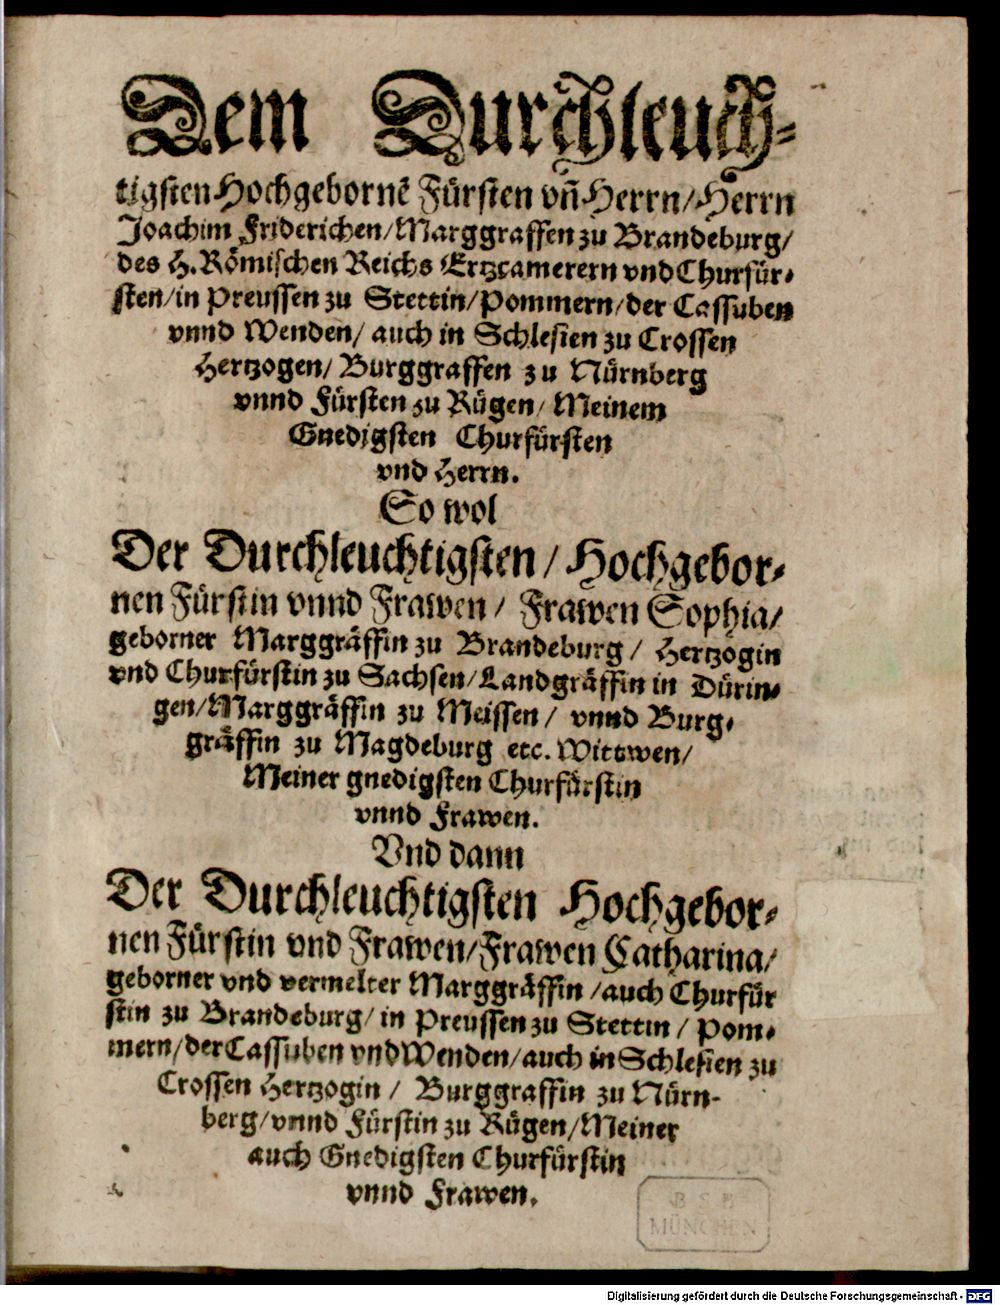 Dem Durchleuch-
tigsten Hochgebornē Fürsten vñ Herrn/Herrn
Joachim Friderichen/Marggraffen zu Brandeburg/
des H. Römischen Reichs Ertzcamerern vnd Churfür-
sten/in Preussen zu Stettin/Pommern/der Cassuben
vnnd Wenden/ auch in Schlesien zu Crossen
Hertzogen/ Burggraffen zu Nürnberg
vnnd Fürsten zu Rügen/ Meinem
Gnedigsten Churfürsten
vnd Herrn.
So wol
Der Durchleuchtigsten/ Hochgebor-
nen Fürstin vnnd Frawen/ Frawen Sophia/
geborner Marggräffin zu Brandeburg/ Hertzogin
vnd Churfürstin zu Sachsen/Landgräffin in Dürin-
gen/Marggräffin zu Meissen/ vnnd Burg-
gräffin zu Magdeburg etc. Wittwen/
Meiner gnedigsten Churfürstin
vnnd Frawen.
Vnd dann
Der Durchleuchtigsten Hochgebor-
nen Fürstin vnd Frawen/Frawen Catharina/
geborner vnd vermelter Marggräffin/auch Churfür
stin zu Brandeburg/in Preussen zu Stettin/ Pom-
mern/der Cassuben vnd Wenden/auch in Schlesien zu
Crossen Hertzogin/ Burggraffin zu Nürn-
berg/vnnd Fürstin zu Rügen/Meiner
auch Gnedigsten Churfürstin
vnnd Frawen.
BSB
MÜNCHEN
Digitalisierung gefördert durch die Deutsche Forschungsgemeinschaft - DFG